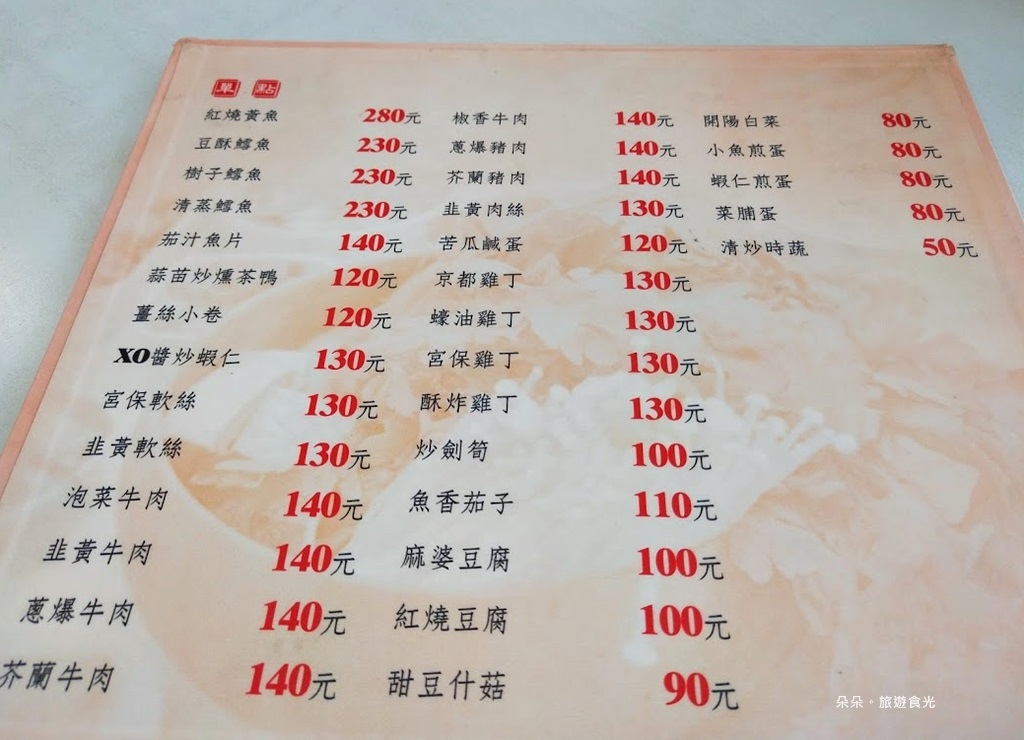 單點
紅燒黃魚 280元
豆酥鱈魚 230元
樹子鱈魚 230元
清蒸鱈魚 230元
茄汁魚片 140元
蒜苗炒燻茶鴨 120元
薑絲小卷 120元
XO醬炒蝦仁 130元
宮保軟絲 130元
韭黃軟絲 130元
泡菜牛肉 140元
韭黃牛肉 140元
蔥爆牛肉 140元
芥蘭牛肉 140元
椒香牛肉 140元
蔥爆豬肉 140元
芥蘭豬肉 140元
韭黃肉絲 130元
苦瓜鹹蛋 120元
京都雞丁 130元
蠔油雞丁 130元
宮保雞丁 130元
酥炸雞丁 130元
炒劍筍 100元
魚香茄子 110元
麻婆豆腐 100元
紅燒豆腐 100元
甜豆什菇 90元
開陽白菜 80元
小魚煎蛋 80元
蝦仁煎蛋 80元
菜脯蛋 80元
清炒時蔬 50元
朵朵。旅遊食光